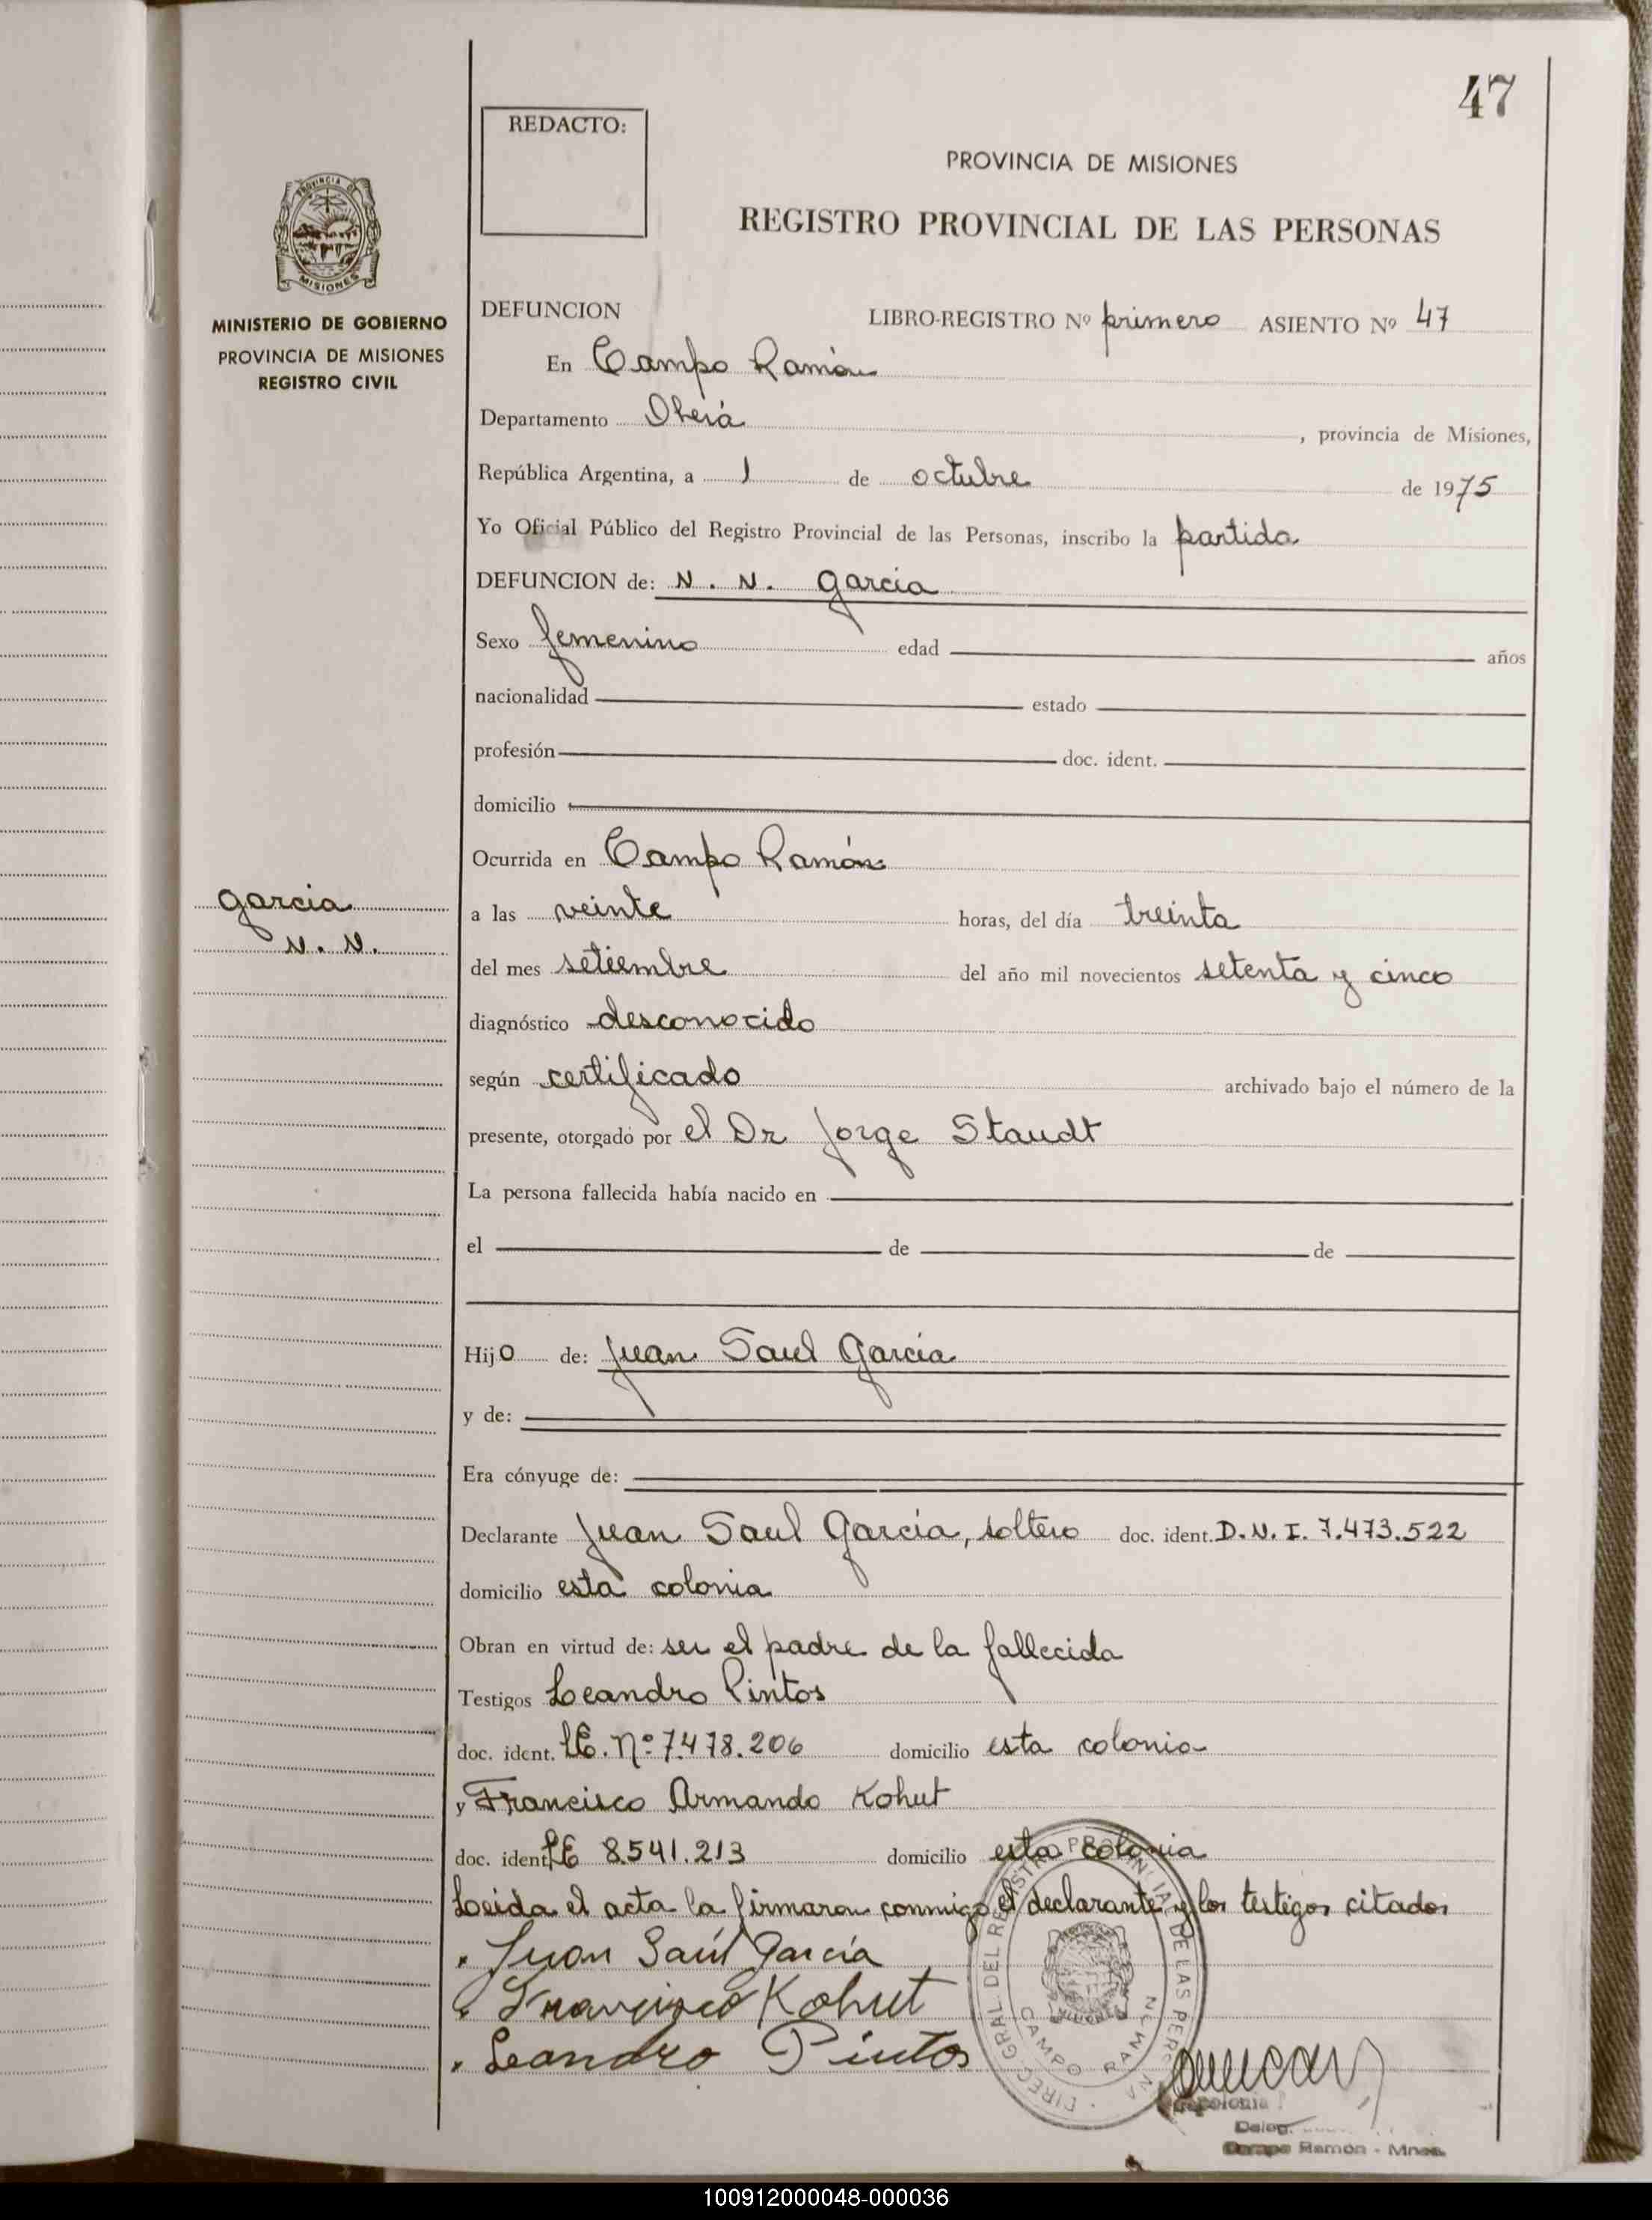 47
REDACTO:
PROVINCIA DE MISIONES
REGISTRO PROVINCIAL DE LAS PERSONAS
PROVINCIA DE
MISIONES
MINISTERIO DE GOBIERNO
PROVINCIA DE MISIONES
REGISTRO CIVIL
DEFUNCION LIBRO-REGISTRO Nº primero ASIENTO Nº 47
En Campo Ramón
Departamento Oberá , provincia de Misiones,
República Argentina, a 1 de octubre de 1975
Yo Oficial Público del Registro Provincial de las Personas, inscribo la partida
DEFUNCION de: N. N. Garcia
Sexo femenino edad años
nacionalidad estado
profesión doc. ident.
domicilio
Ocurrida en Campo Ramón
Garcia
N. N.
a las veinte horas, del día treinta
del mes setiembre del año mil novecientos setenta y cinco
diagnóstico desconocido
según certificado archivado bajo el número de la
presente, otorgado por el Dr Jorge Staudt
La persona fallecida había nacido en
el de de
Hijo de: Juan Saul García
y de:
Era cónyuge de:
Declarante Juan Saul García, soltero doc. ident. D.N.I. 7.473.522
domicilio esta colonia
Obran en virtud de: ser el padre de la fallecida
Testigos Leandro Pintos
doc. ident. LE. Nº 7.478.206 domicilio esta colonia
y Francisco Armando Kohut
doc. ident. LE 8.541.213 domicilio esta colonia
Leida el acta la firmaron conmigo el declarante y los testigos citados
Juan Saúl García
Francisco Kohut
Leandro Pintos
DIREC. GRAL. DEL REGISTRO PROVINCIAL DE LAS PERSONAS
CAMPO RAMON
Colonia
Deleg.
Campo Ramón - Mnes.
100912000048-000036